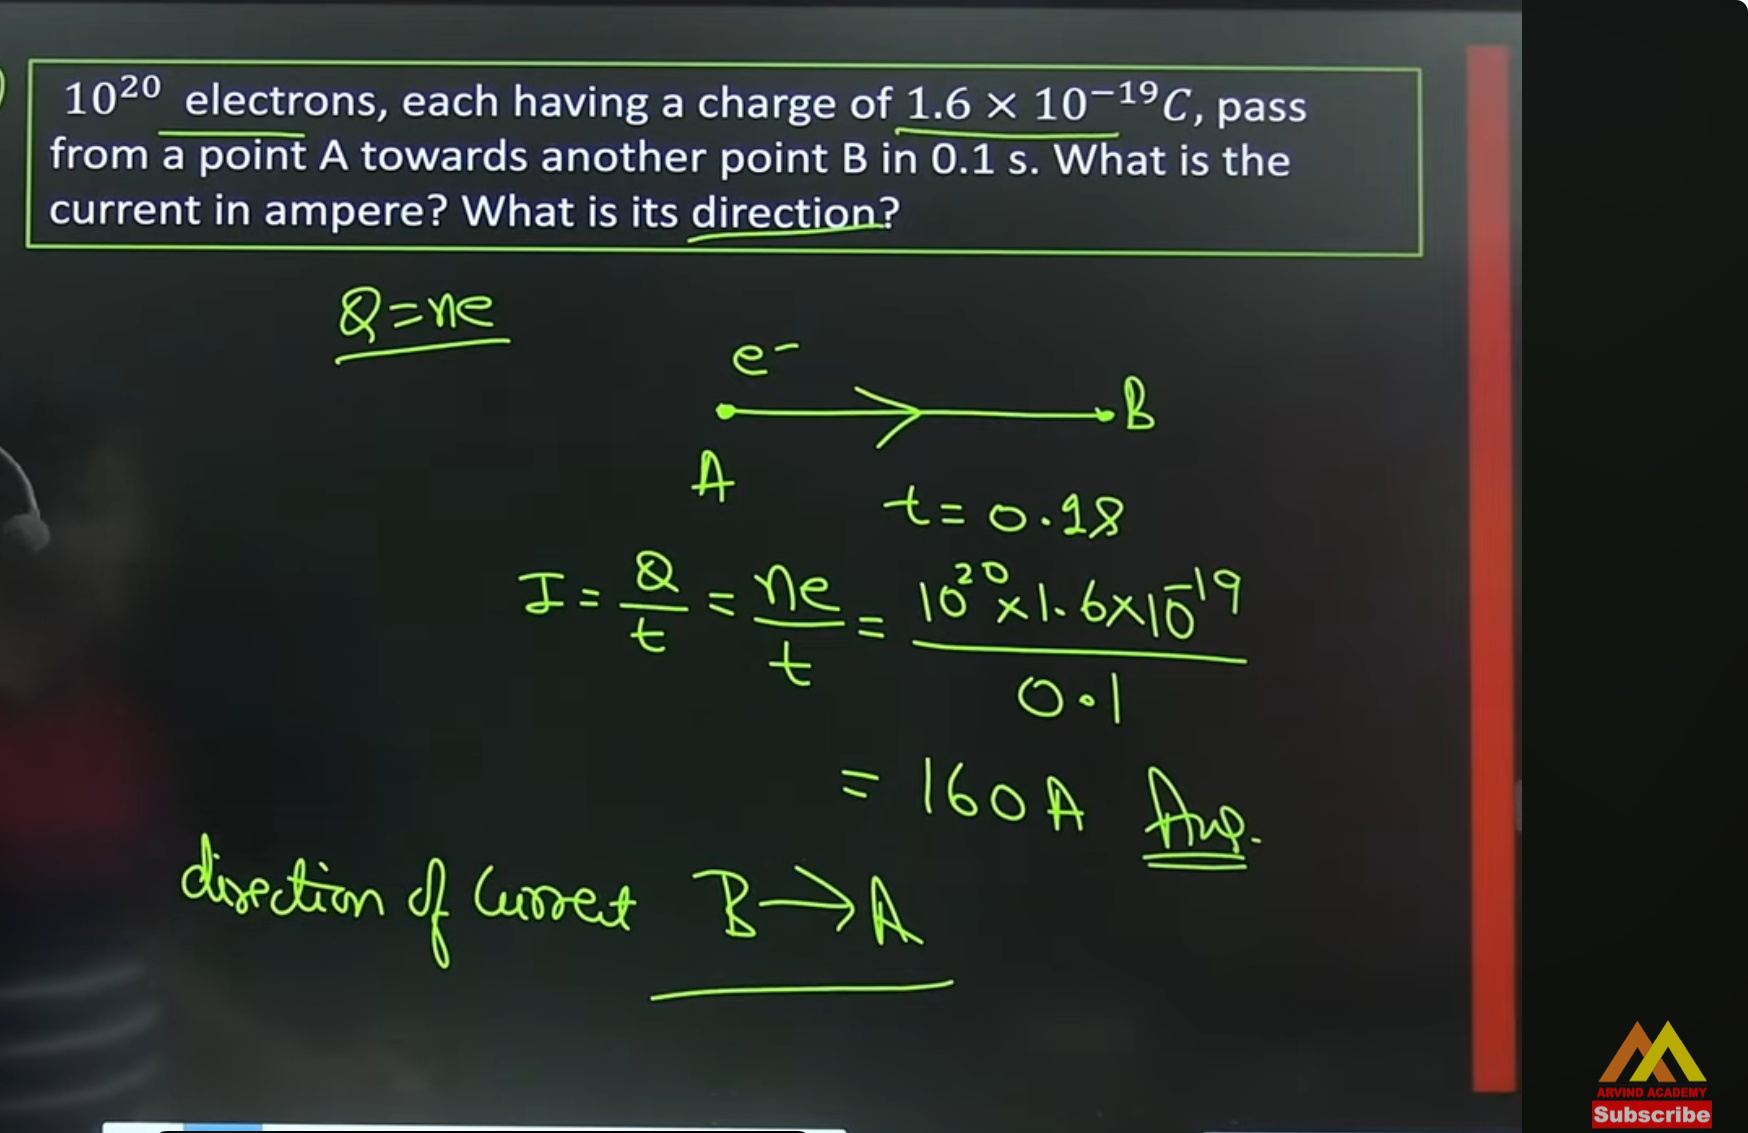 10²⁰ electrons, each having a charge of 1.6 × 10⁻¹⁹C, pass
from a point A towards another point B in 0.1 s. What is the
current in ampere? What is its direction?
Q=ne
e⁻
B
A
t=0.1s
I = Q/t = ne/t = 10²⁰×1.6×10⁻¹⁹/0.1
= 160A Ans.
direction of Current B→A
ARVIND ACADEMY
Subscribe